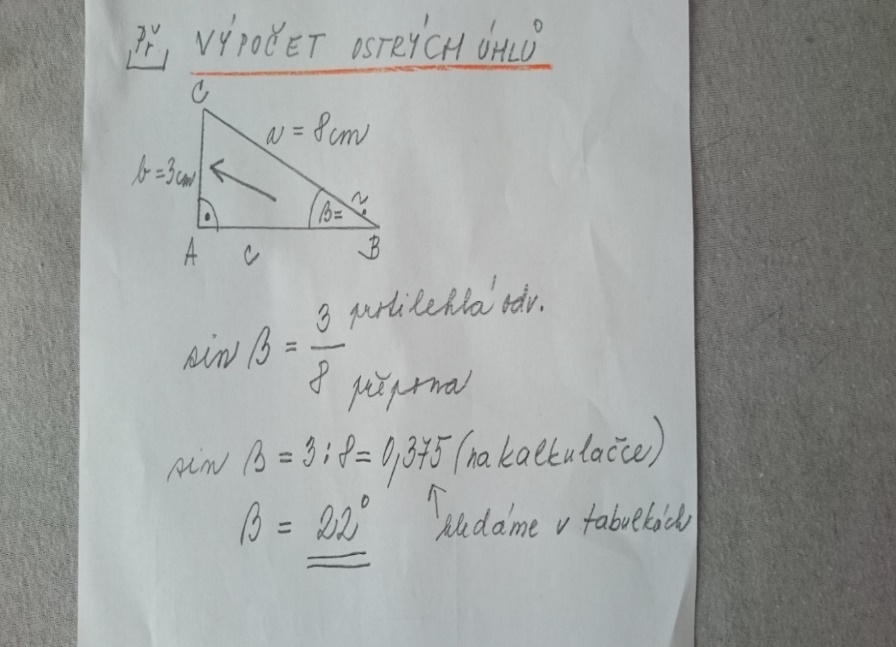 Př VÝPOČET OSTRÝCH ÚHLŮ
C
a = 8cm
b = 3cm
β = ?
A c B
sin β = 3/8 protilehlá odv.
přepona
sin β = 3 : 8 = 0,375 (na kalkulačce)
β = 22° ↑ hledáme v tabulkách